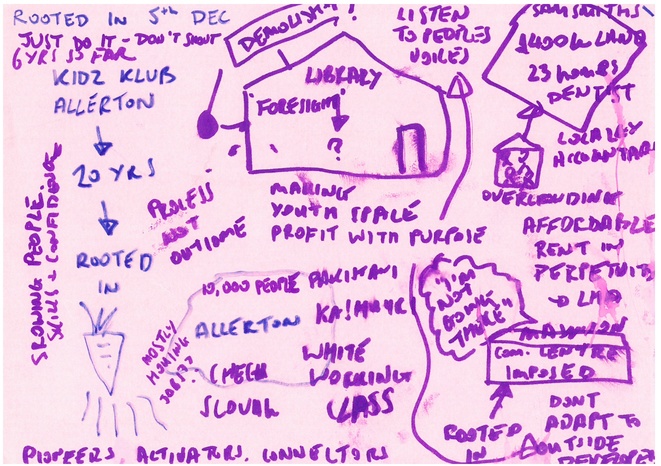 ROOTED IN 5th DEC
JUST DO IT - DON'T SHOUT
6 YRS SO FAR
KIDZ KLUB
ALLERTON
20 YRS
ROOTED
IN
GROWING PEOPLE.
SKILLS + CONFIDENCE
DEMOLISH?!
LIBRARY
"FORESIGHT"
?
PROCESS
NOT
OUTCOME
MAKING
YOUTH SPACE
PROFIT WITH PURPOSE
LISTEN
TO PEOPLES
VOICES
SAM SMITHS
$400k LAND
23 hours
DENTIST
LOCALLY
ACCOUNTAB
OVERCROWDING
AFFORDABLE
RENT IN
PERPETUIT
10,000 PEOPLE
ALLERTON
MOSTLY
HOUSING
JOBS??
CHECH
SLOVAK
PAKISTANI
KASHMIR
WHITE
WORKING
CLASS
"I'M
NOT
GOING
THERE"
MANNION
Com. CENTRE
IMPOSED
ROOTED
IN
DONT
ADAPT TO
OUTSIDE
PIONEERS, ACTIVATORS, CONNECTORS